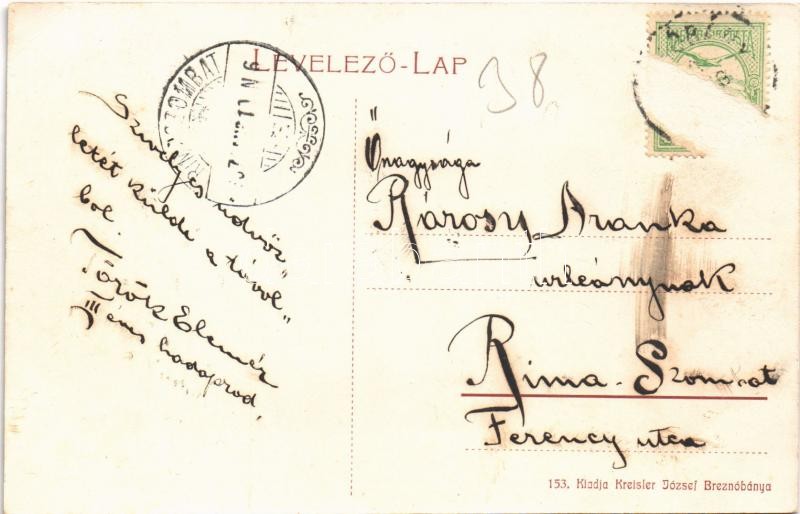 LEVELEZŐ-LAP
38
Szívélyes üdvöz-
letét küldi a távol-
ból.
Török Elemér
III éves hadapród.
Őnagysága
Károsy Aranka
urleánynak
Rima-Szombat
Ferency utca
153. Kiadja Kreisler József Breznóbánya